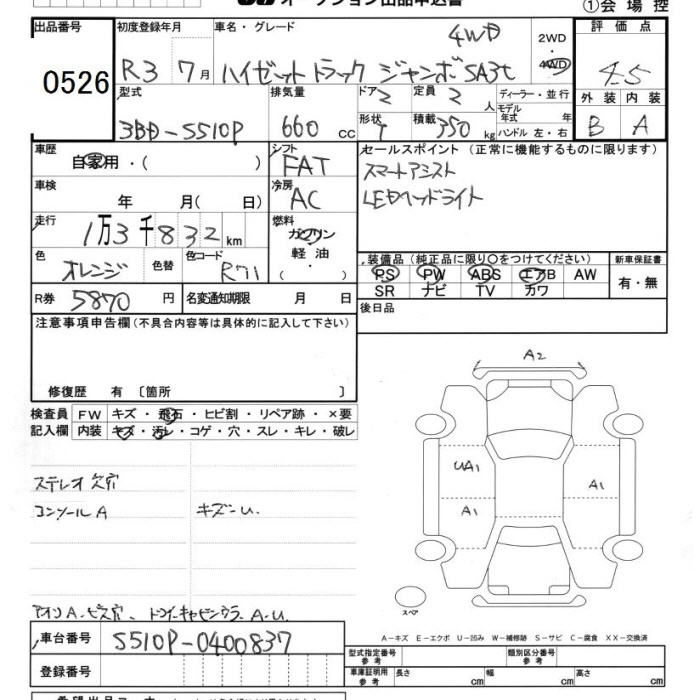 オークション出品申込書
①会場控
出品番号 0526
初度登録年月 R3 7月
車名・グレード 4WD
ハイゼットトラック ジャンボSA3t
2WD・4WD
評価点 4.5
型式 3BD-S510P
排気量 660 cc
ドア 2
定員 2 人
形状 T
積載 350 kg
ディーラー・並行
モデル年式 年
ハンドル 左・右
外装 内装
B A
車歴 自家用・( )
シフト FAT
セールスポイント (正常に機能するものに限ります)
スマートアシスト
LEDヘッドライト
車検 年 月( 日)
冷房 AC
走行 1万3千832km
燃料 ガソリン
軽油
・( )・
色 オレンジ 色替 色コード R71
装備品(純正品に限り○をつけてください)
新車保証書
PS PW ABS エアB AW
SR ナビ TV カワ
有・無
R券 5870 円
名変通知期限 月 日
後日品
注意事項申告欄(不具合内容等は具体的に記入して下さい)
修復歴 有 〔箇所 〕
検査員 FW キズ・飛石・ヒビ割・リペア跡・×要
記入欄 内装 キズ・汚レ・コゲ・穴・スレ・キレ・破レ
A2
UA1
A1
A1
ステレオ欠穴
コンソールA キズ-U.
スペア
A-キズ E-エクボ U-凹み W-補修跡 S-サビ C-腐食 XX-交換済
車台番号 S510P-0400837
登録番号
型式指定番号 参考
類別区分番号 参考
車庫証明用 参考
長さ cm 幅 cm 高さ cm
希望出品コーナー